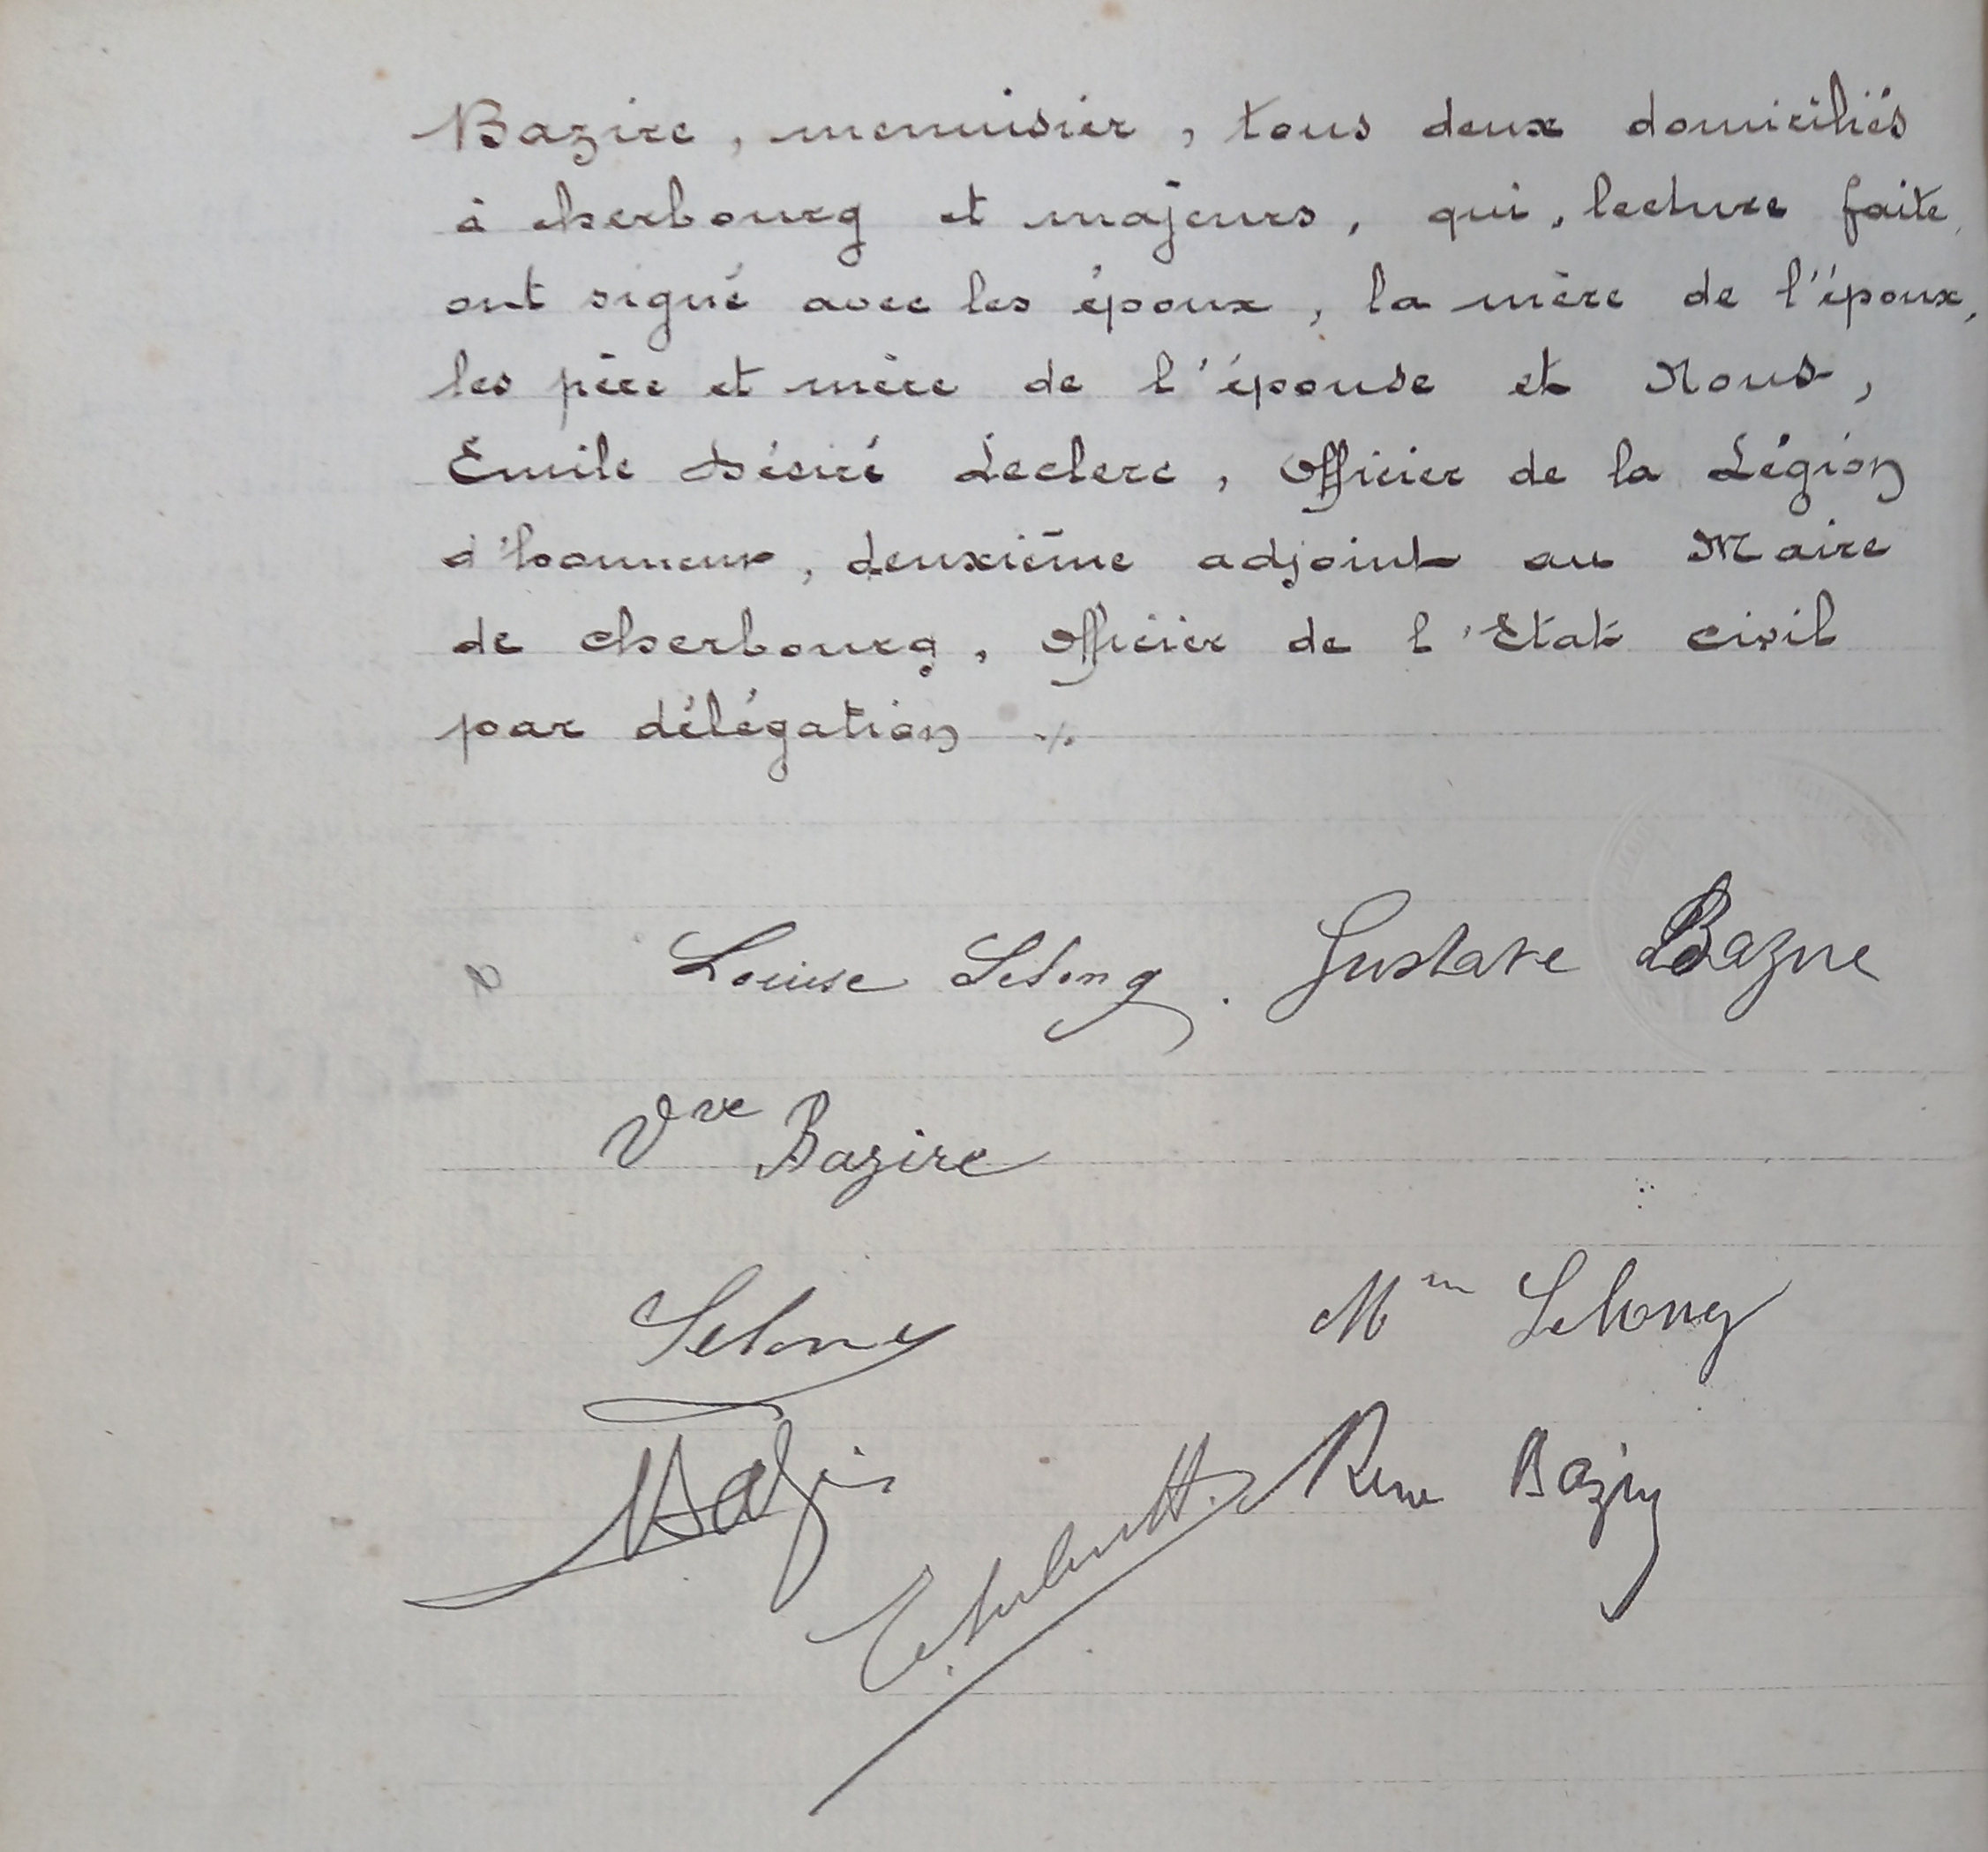 Bazire, menuisier, tous deux domiciliés
à cherbourg et majeurs, qui, lecture faite,
ont signé avec les époux, la mère de l'époux,
les père et mère de l'épouse et Nous,
Emile Désiré Leclerc, Officier de la Légion
d'honneur, deuxième adjoint au Maire
de cherbourg, officier de l'Etat civil
par délégation ./.
Louise Lelong. Gustave Bazire
Vve Bazire
Lelong Mm Lelong
René Bazire